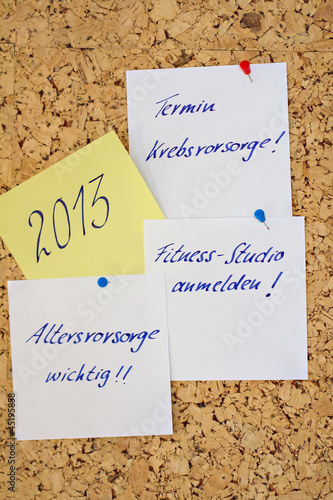 Termin
Krebsvorsorge!
2013
Fitness-Studio
anmelden!
Altersvorsorge
wichtig!!